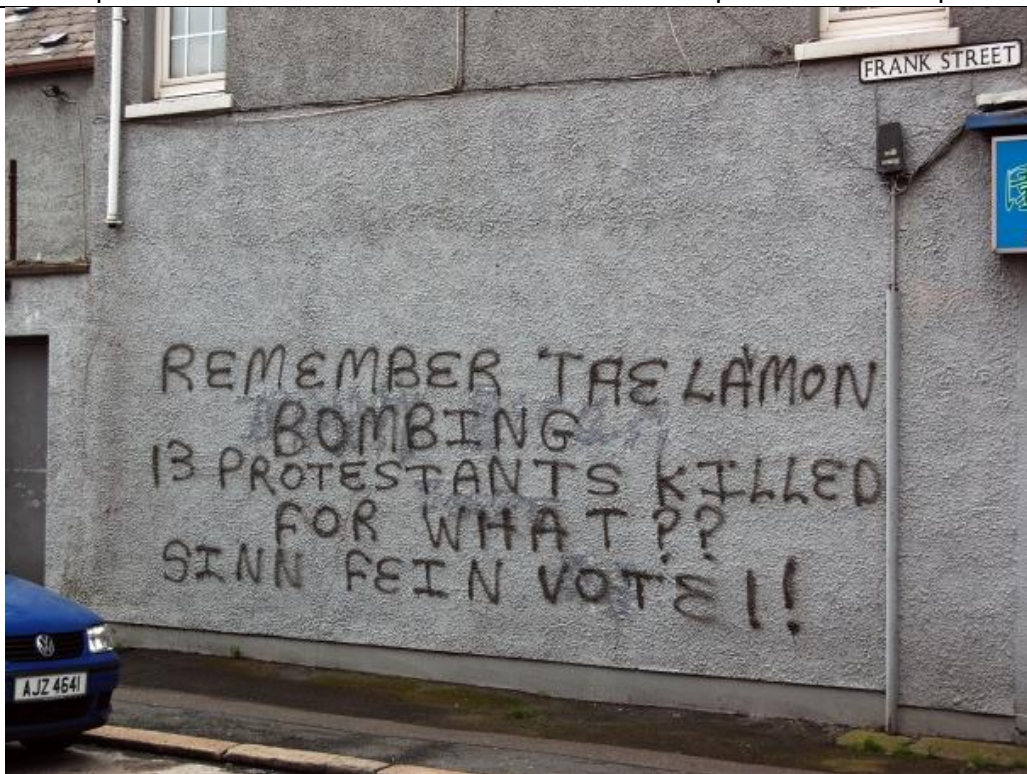 FRANK STREET
REMEMBER TAE LA'MON
BOMBING
13 PROTESTANTS KILLED
FOR WHAT??
SINN FEIN VOTE!!
AJZ 4641